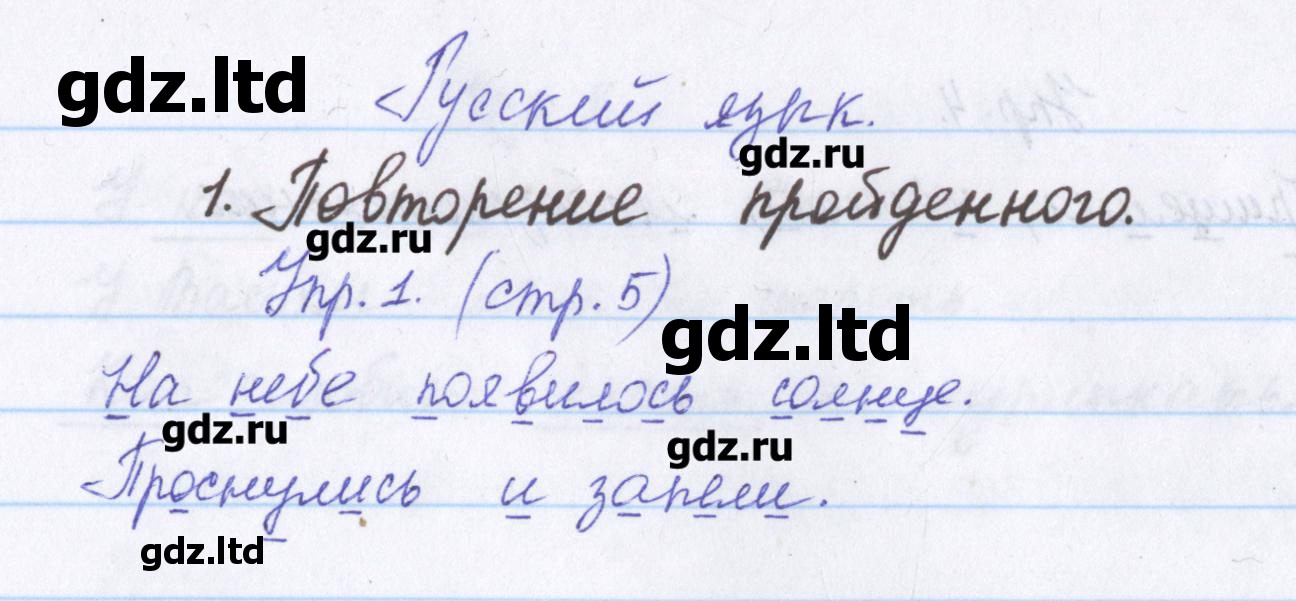 gdz.ltd
Русский язык.
gdz.ru
1. Повторение пройденного.
gdz.ru
Упр. 1. (стр. 5)
gdz.ltd
На небе появилось солнце.
gdz.ru
gdz.ru
Проснулись и запели.
gdz.ltd